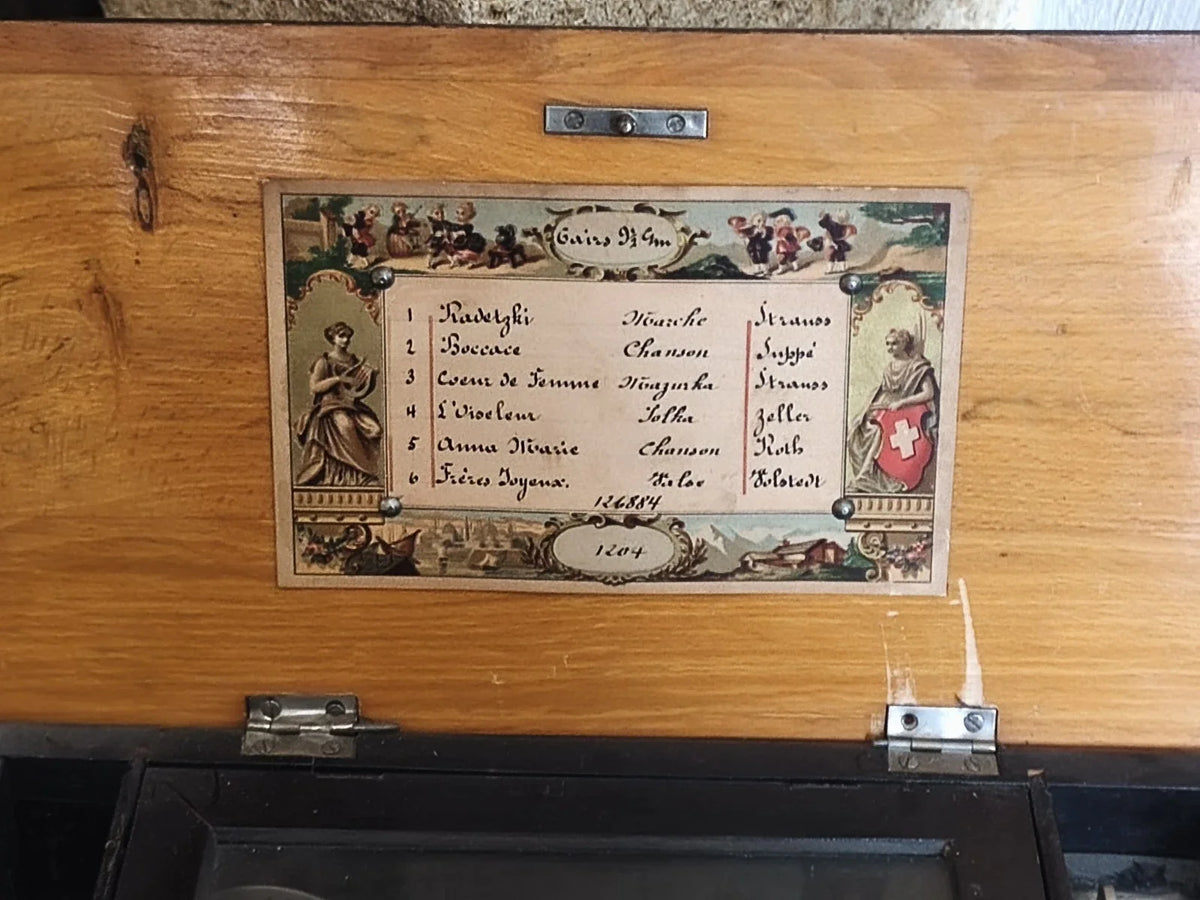 6 airs
1 Radetzki Marche Strauss
2 Boccace Chanson Suppé
3 Coeur de Femme Mazurka Strauss
4 L'Oiseleur Polka Zeller
5 Anna Marie Chanson Roth
6 Frères Joyeux. Valse Volstedt
126884
1204